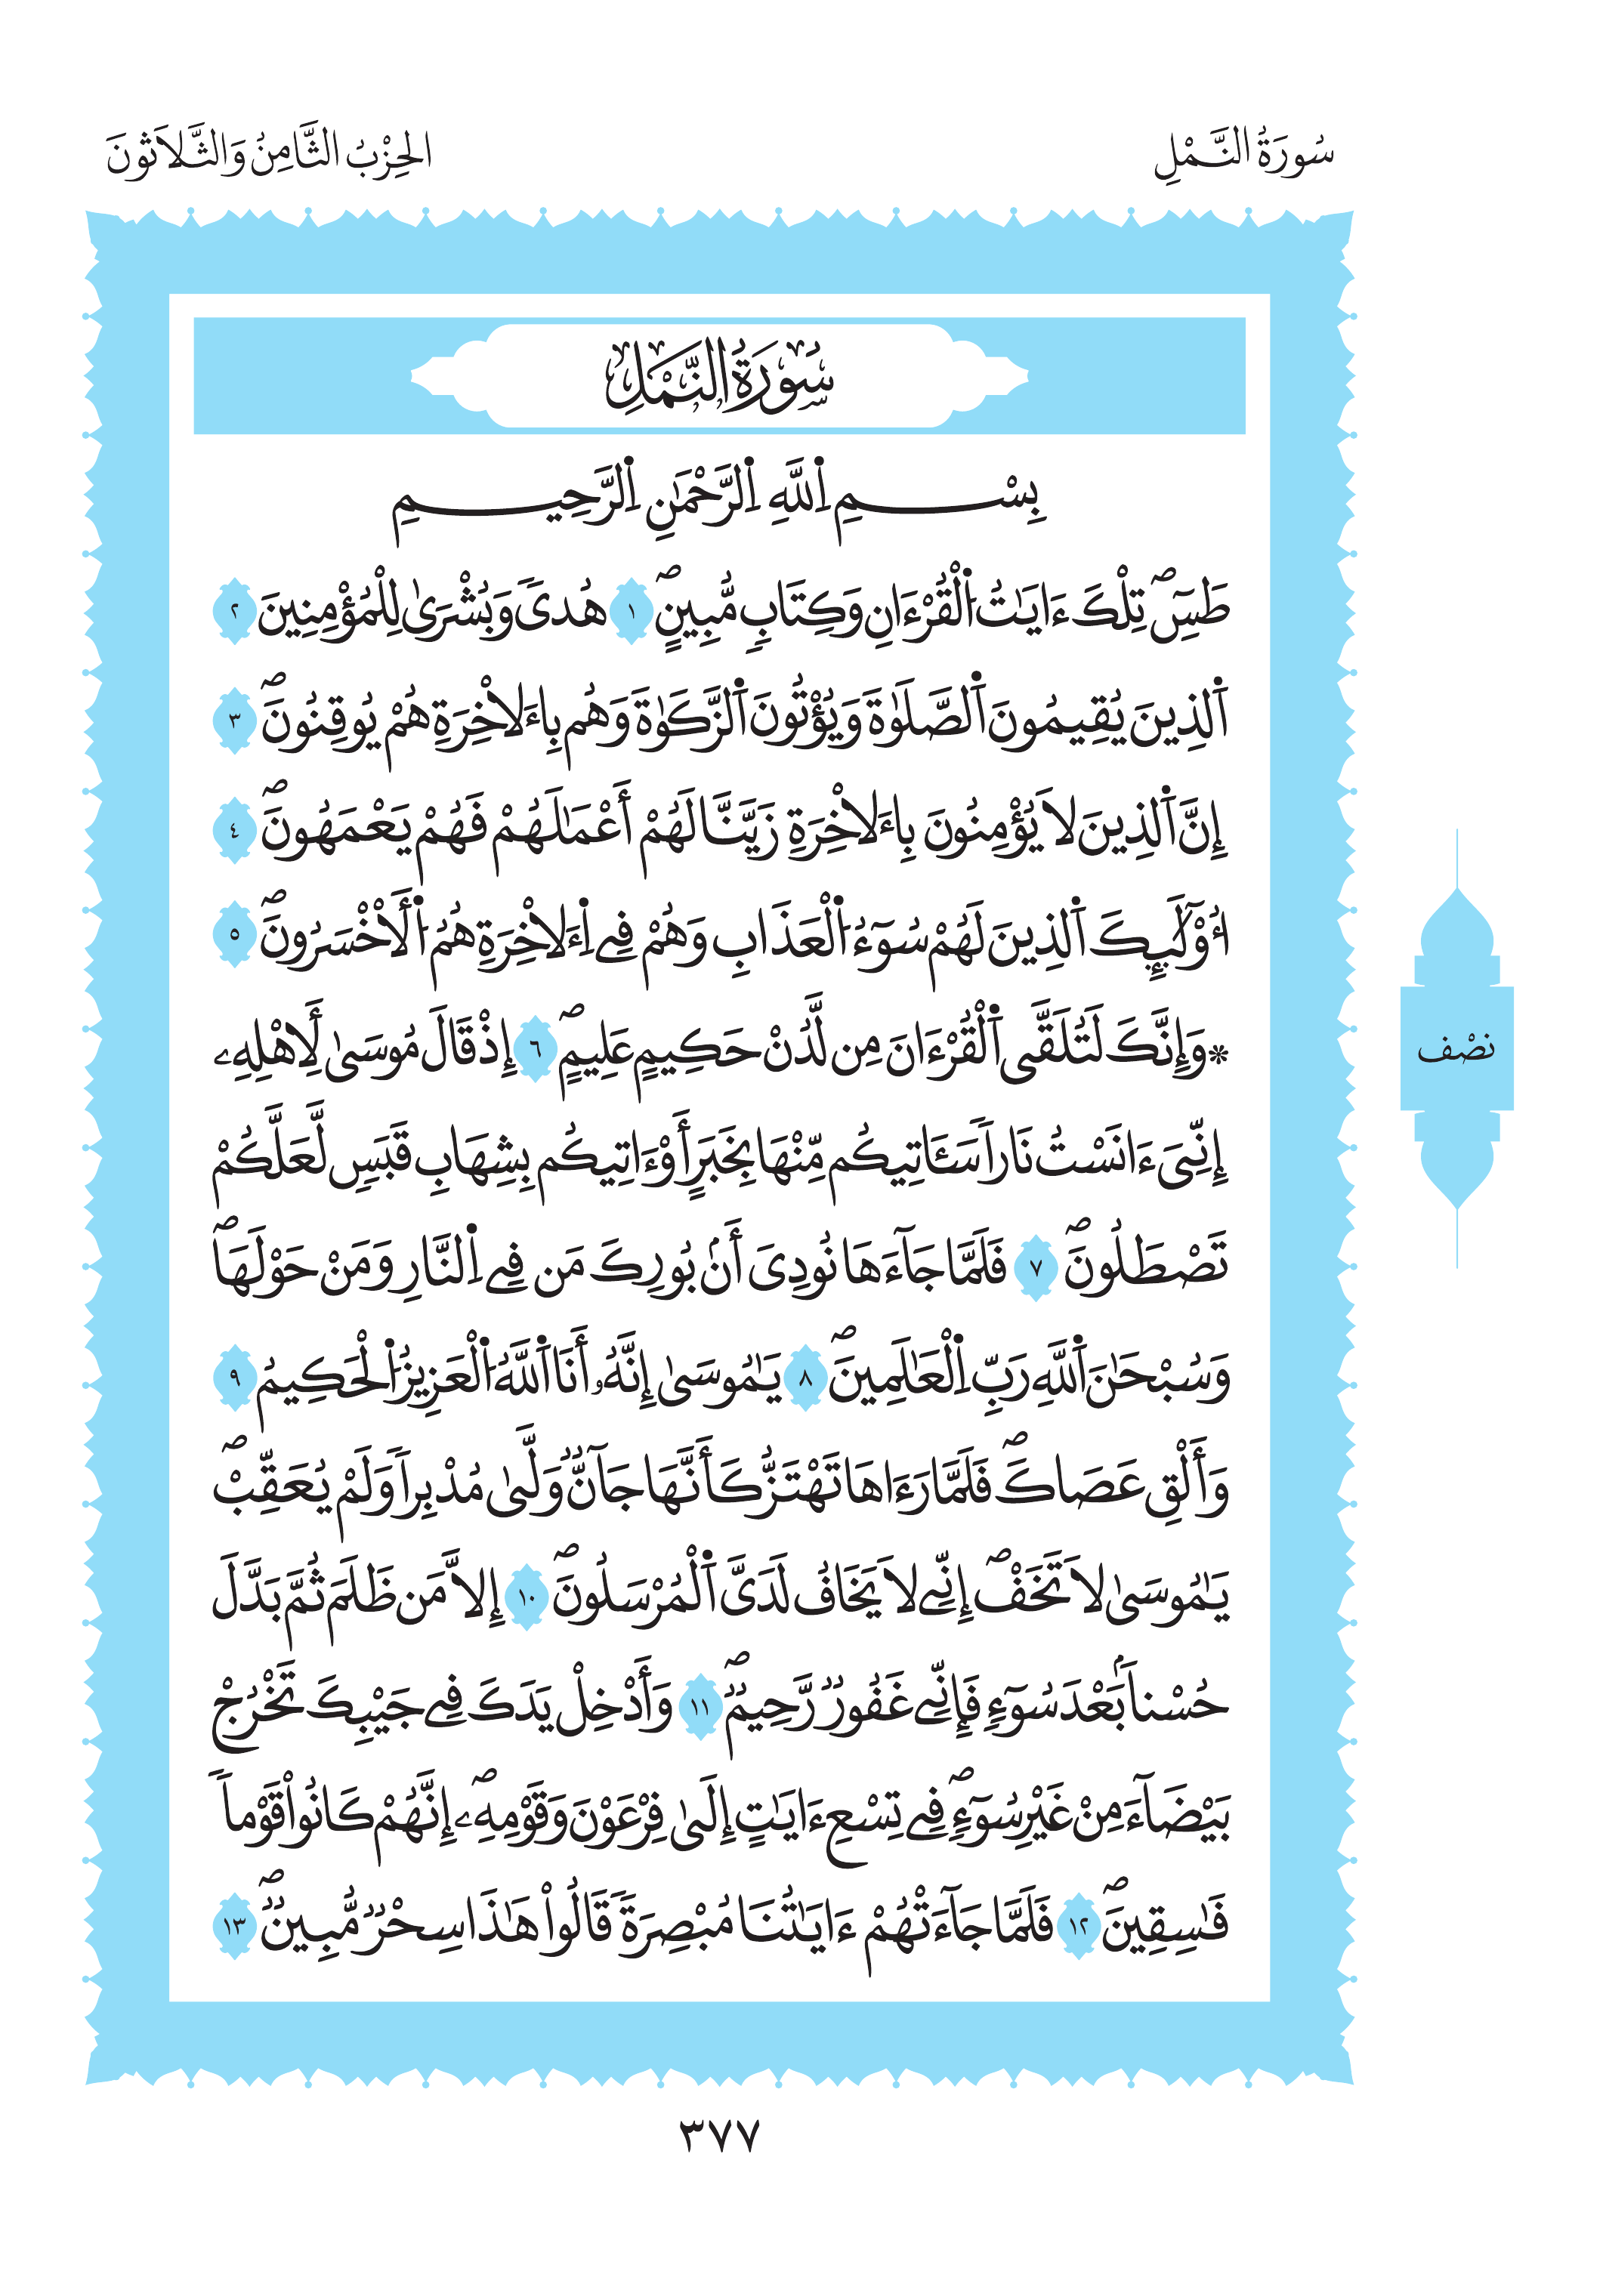 سُورَةُ النَّمْلِ
الحِزْبُ الثَّامِنُ وَالثَّلاَثُونَ
سُورَةُ النَّمْلِ
بِسْمِ اِ۬للَّهِ اِ۬لرَّحْمَٰنِ اِ۬لرَّحِيمِ
طَسِٓۖ تِلْكَ ءَايَٰتُ اُ۬لْقُرْءَانِ وَكِتَابٖ مُّبِينٍۖ ١ هُدىٗ وَبُشْرَىٰ لِلْمُؤْمِنِينَ ٢
اَ۬لذِينَ يُقِيمُونَ اَ۬لصَّلَوٰةَ وَيُؤْتُونَ اَ۬لزَّكَوٰةَ وَهُم بِاءَلَاخِرَةِ هُمْ يُوقِنُونَۖ ٣
إِنَّ اَ۬لذِينَ لَا يُؤْمِنُونَ بِاءَلَاخِرَةِ زَيَّنَّا لَهُمْ أَعْمَٰلَهُمْ فَهُمْ يَعْمَهُونَۖ ٤
أُوْلَٰٓئِكَ اَ۬لذِينَ لَهُمْ سُوٓءُ اُ۬لْعَذَابِ وَهُمْ فِے اِ۬ءَلَاخِرَةِ هُمُ اُ۬لَاخْسَرُونَۖ ٥
۞وَإِنَّكَ لَتُلَقَّى اَ۬لْقُرْءَانَ مِن لَّدُنْ حَكِيمٍ عَلِيمٍۖ ٦ إِذْ قَالَ مُوسَىٰ لِأَهْلِهِۦ
إِنِّيَ ءَانَسْتُ نَاراٗ سَـَٔاتِيكُم مِّنْهَا بِخَبَرٍ أَوْ ءَاتِيكُم بِشِهَابِ قَبَسٖ لَّعَلَّكُمْ
تَصْطَلُونَۖ ٧ فَلَمَّا جَآءَهَا نُودِيَ أَنۢ بُورِكَ مَن فِے اِ۬لنَّارِ وَمَنْ حَوْلَهَاۖ
وَسُبْحَٰنَ اَ۬للَّهِ رَبِّ اِ۬لْعَٰلَمِينَۖ ٨ يَٰمُوسَىٰ إِنَّهُۥ أَنَا اَ۬للَّهُ اُ۬لْعَزِيزُ اُ۬لْحَكِيمُ ٩
وَأَلْقِ عَصَاكَۖ فَلَمَّا رَءَاهَا تَهْتَزُّ كَأَنَّهَا جَآنّٞ وَلَّىٰ مُدْبِراٗ وَلَمْ يُعَقِّبْۖ
يَٰمُوسَىٰ لَا تَخَفْۖ إِنِّے لَا يَخَافُ لَدَيَّ اَ۬لْمُرْسَلُونَۖ ١٠ إِلَّا مَن ظَلَمَ ثُمَّ بَدَّلَ
حُسْناَۢ بَعْدَ سُوٓءٖ فَإِنِّے غَفُورٞ رَّحِيمٞۖ ١١ وَأَدْخِلْ يَدَكَ فِے جَيْبِكَ تَخْرُجْ
بَيْضَآءَ مِنْ غَيْرِ سُوٓءٖۖ فِے تِسْعِ ءَايَٰتٍ إِلَىٰ فِرْعَوْنَ وَقَوْمِهِۦٓۖ إِنَّهُمْ كَانُواْ قَوْماٗ
فَٰسِقِينَۖ ١٢ فَلَمَّا جَآءَتْهُمْ ءَايَٰتُنَا مُبْصِرَةٗ قَالُواْ هَٰذَا سِحْرٞ مُّبِينٞۖ ١٣
نصْف
٣٧٧